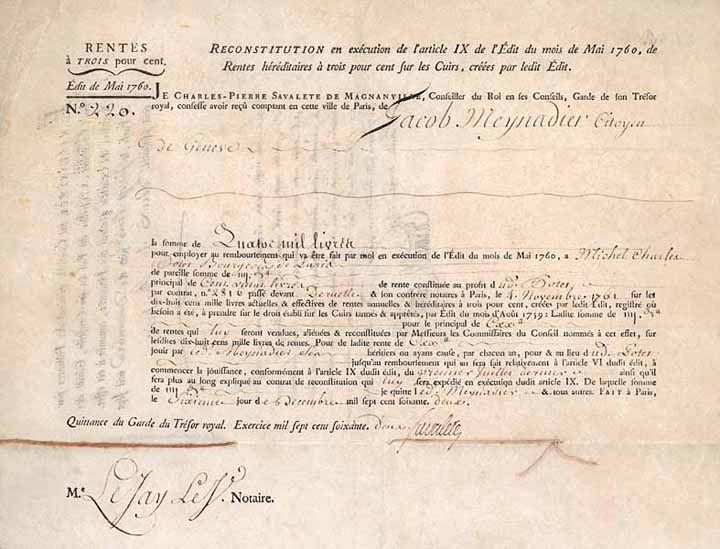 RENTES
à TROIS pour cent.
Édit de Mai 1760.
N.º 220.
RECONSTITUTION en exécution de l'article IX de l'Édit du mois de Mai 1760, de
Rentes héréditaires à trois pour cent sur les Cuirs, créées par ledit Édit.
JE CHARLES-PIERRE SAVALETE DE MAGNANVILLE, Conseiller du Roi en ses Conseils, Garde de son Trésor
royal, confesse avoir reçu comptant en cette ville de Paris, de
Jacob Meynadier Citoyen
de Geneve
la somme de Quatre mil livres
pour employer au remboursement qui va être fait par moi en exécution de l'Édit du mois de Mai 1760, a Michel Charles
Poter Bourgeois de Paris
de pareille somme de iiij.
principal de Cent vingt livres de rente constituée au profit dud. Poter
par contrat, n.º 2810 passé devant & son confrère notaires à Paris, le 4. Novembre 1761 sur les
dix-huit cens mille livres actuelles & effectives de rentes annuelles & héréditaires à trois pour cent, créées par ledit Édit, registré où
besoin a été, à prendre sur le droit établi sur les Cuirs tannés & apprêtés, par Édit du mois d'Août 1759: Ladite somme de iiij.
pour le principal de
de rentes qui luy seront vendues, aliénées & reconstituées par Messieurs les Commissaires du Conseil nommés à cet effet, sur
lesdites dix-huit cens mille livres de rentes. Pour de ladite rente de
jouir par led. Meynadier ses héritiers ou ayans cause, par chacun an, pour & au lieu dud. Poter
jusqu'au remboursement qui en sera fait relativement à l'article VI dudit édit, à
commencer la jouissance, conformément à l'article IX dudit édit, du premier Juillet dernier ainsi qu'il
sera plus au long expliqué au contrat de reconstitution qui luy sera expédié en exécution dudit article IX. De laquelle somme
de iiij. je quitte led. Meynadier & tous autres. FAIT à Paris,
le jour de Decembre mil sept cent soixante. deux.
Quittance du Garde du Trésor royal. Exercice mil sept cent soixante. deux
Savalete
M.e Le Jay Notaire.